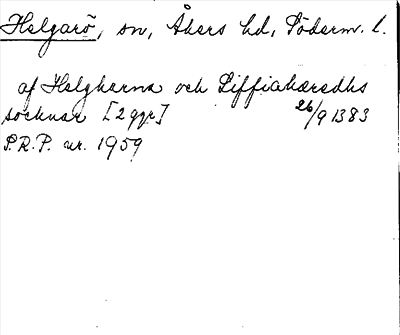 Helgarö, sn, Åkers hd, Söderm. l.
af Helgherna och Siffiahæredhs
socknar [2 ggr] 26/9 1383
S.R.P. nr. 1959